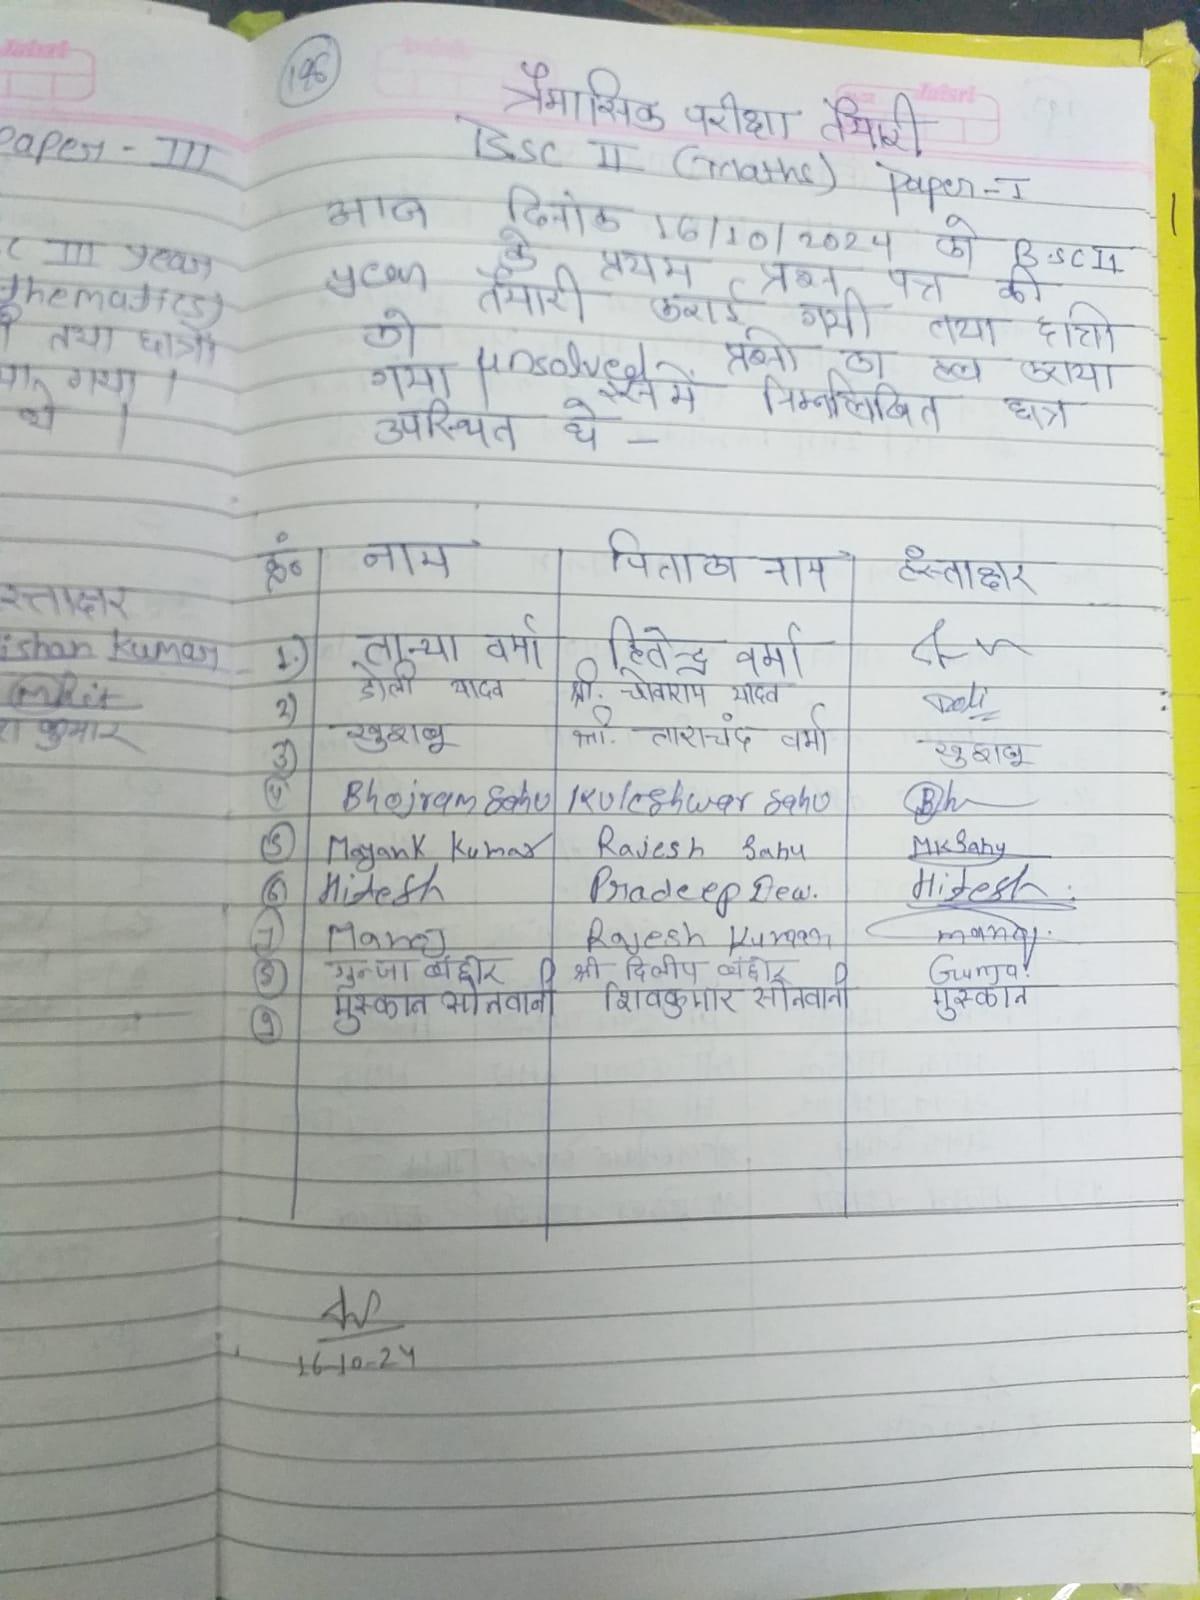 196
त्रैमासिक परीक्षा तैयारी
B.Sc II (maths) Paper-I
आज दिनांक 16/10/2024 को B.SC II
year के प्रथम प्रश्न पत्र की
तैयारी कराई गयी तथा छात्रो
को unsolved प्रश्नो का हल कराया
गया। इसमें निम्नलिखित छात्र
उपस्थित थे —
क्रं० नाम पिता का नाम हस्ताक्षर
1.) तान्या वर्मा हितेन्द्र वर्मा
2) डोली यादव श्री. चोवाराम यादव Doli
3) खुशबू श्री. ताराचंद वर्मा खुशबू
4 Bhojram Sahu Kuleshwar Sahu Bh
5 Mayank Kumar Rajesh Sahu MKSahu
6 Hitesh Pradeep Dew. Hitesh
7 Manoj Rajesh Kumar manoj.
8 गुन्जा बंछोर श्री दिलीप बंछोर Gunja
9 मुस्कान सोनवानी शिवकुमार सोनवानी मुस्कान
16-10-24
Paper - III
III year
तथा छात्रो
गया।
थे।
हस्ताक्षर
ishan Kumar
Ankit
कुमार